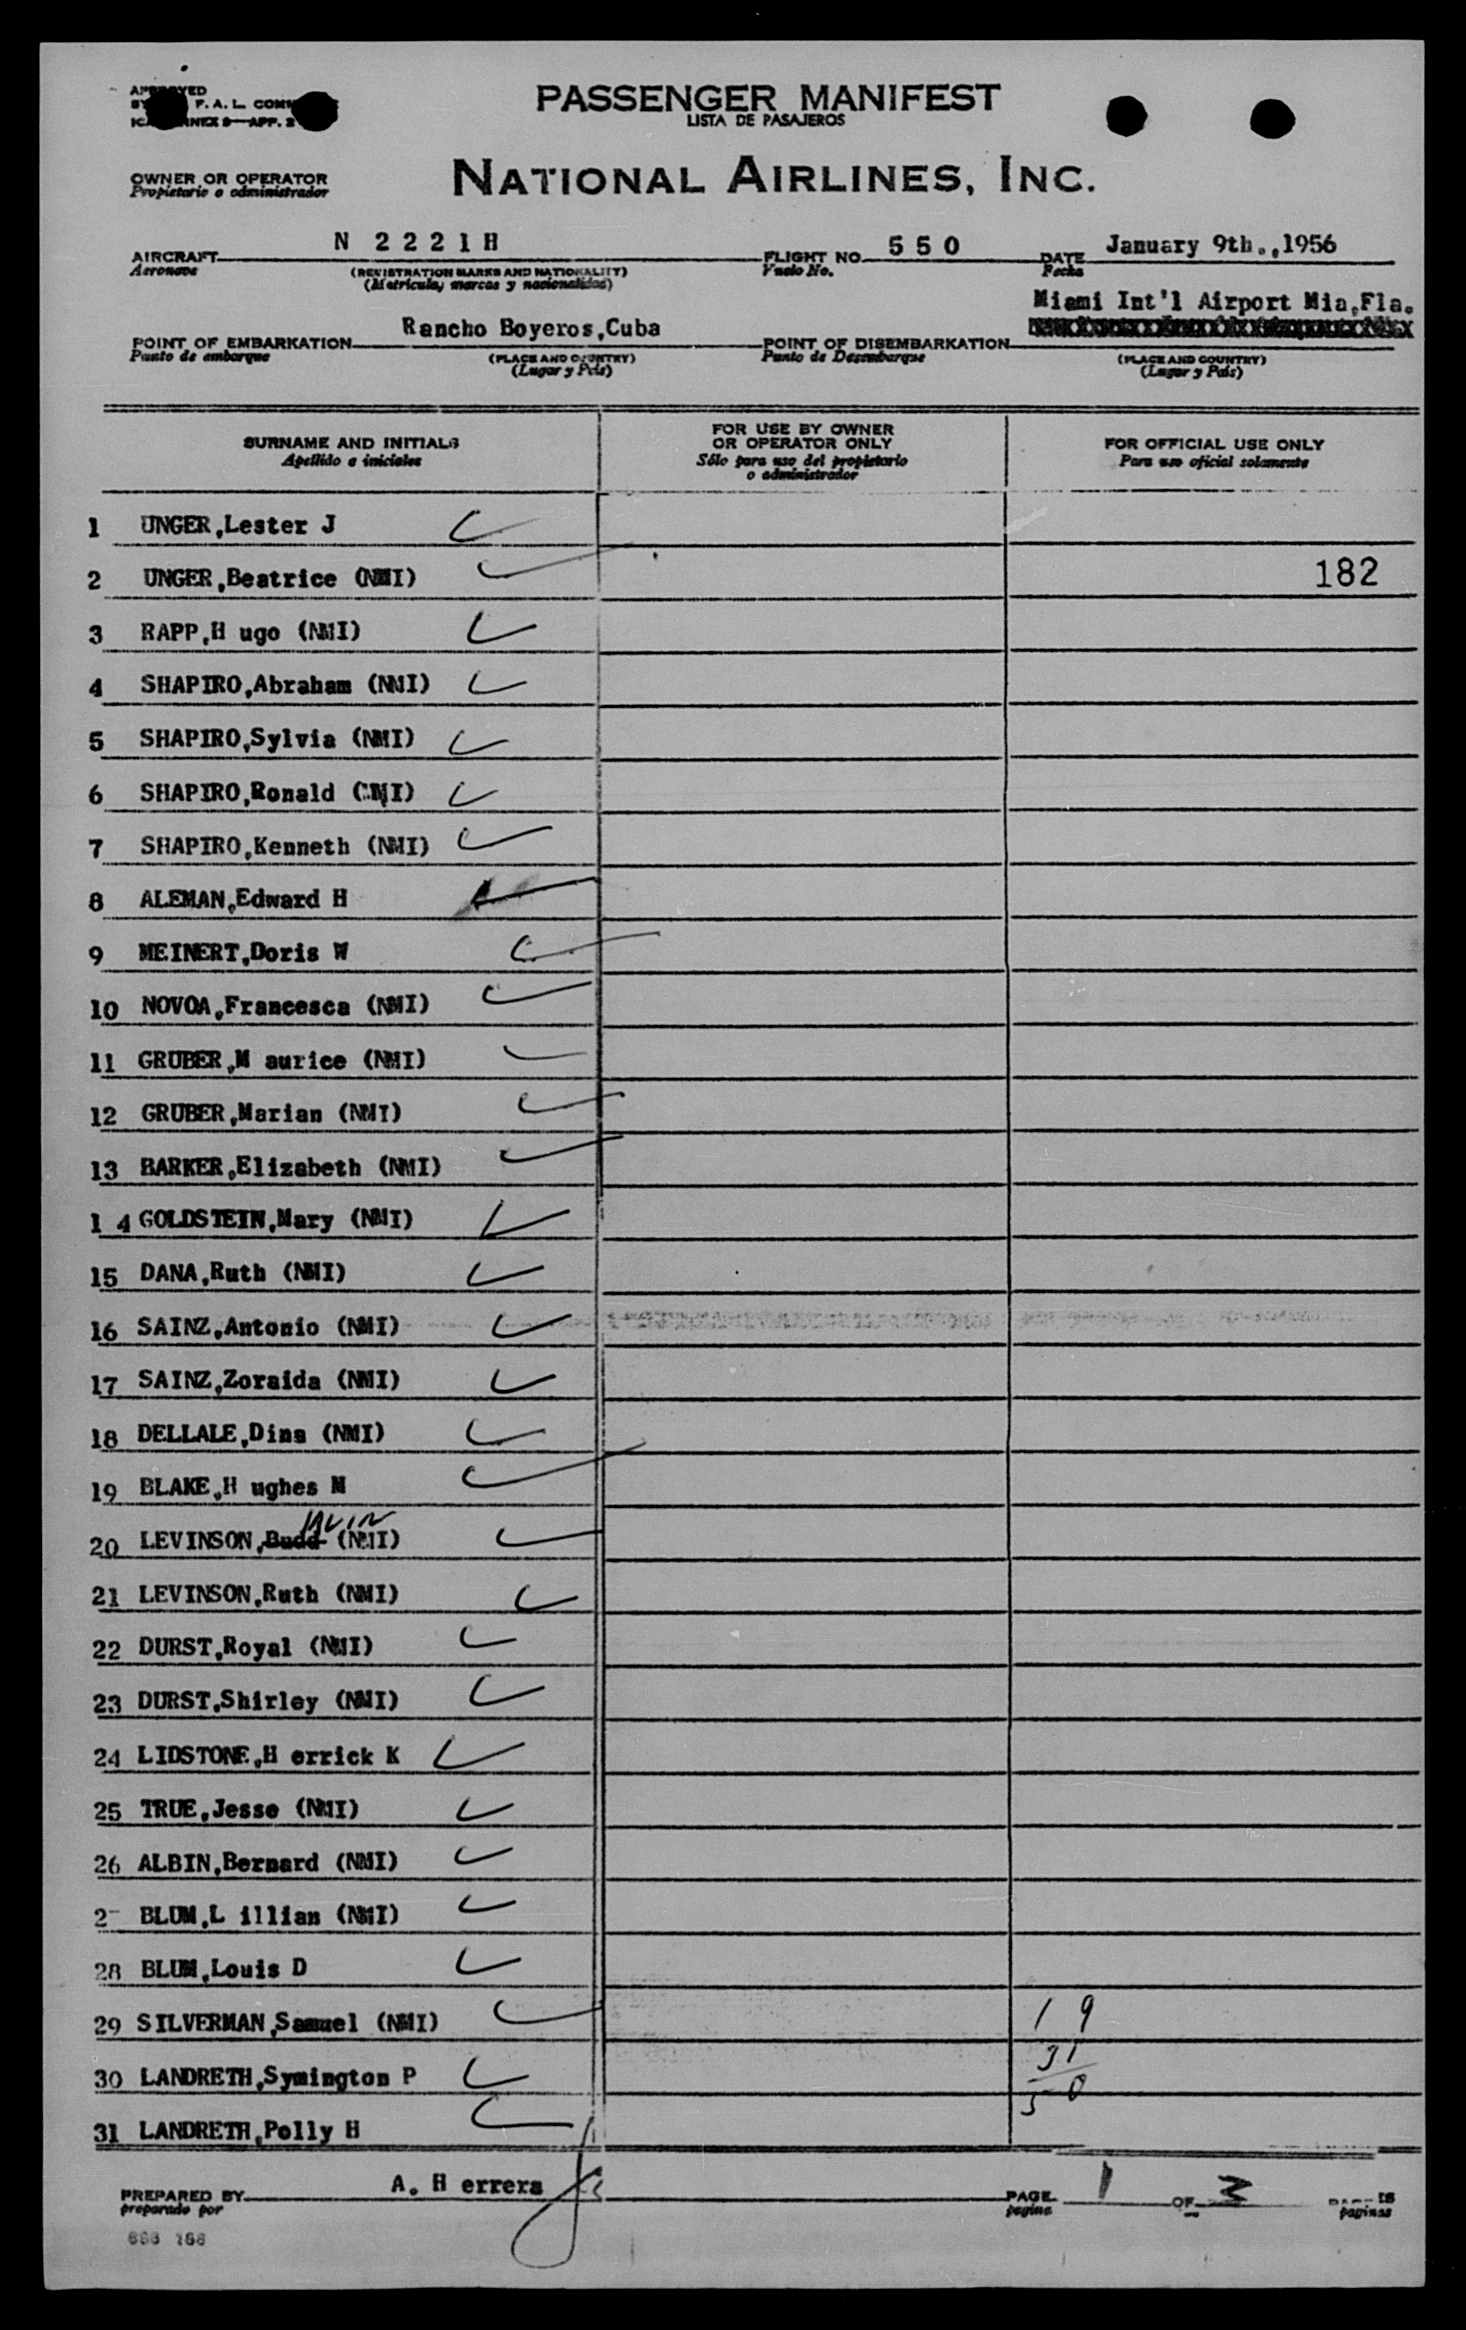 PASSENGER MANIFEST
LISTA DE PASAJEROS
F. A. L.
APP. 2
OWNER OR OPERATOR
Propietario o administrador
NATIONAL AIRLINES, INC.
AIRCRAFT N 2 2 2 1 H FLIGHT NO. 5 5 0 DATE January 9th.,1956
Aeronave (REGISTRATION MARKS AND NATIONALITY) Vuelo No. Fecha
(Matricula, marcas y nacionalidad)
Miami Int'l Airport Mia,Fla.
POINT OF EMBARKATION Rancho Boyeros,Cuba POINT OF DISEMBARKATION
Punto de embarque (PLACE AND COUNTRY) Punto de Desembarque (PLACE AND COUNTRY)
(Lugar y País) (Lugar y País)
SURNAME AND INITIALS FOR USE BY OWNER OR OPERATOR ONLY FOR OFFICIAL USE ONLY
Apellido e iniciales Sólo para uso del propietario o administrador Para uso oficial solamente
1 UNGER,Lester J
2 UNGER,Beatrice (NMI) 182
3 RAPP,H ugo (NMI)
4 SHAPIRO,Abraham (NMI)
5 SHAPIRO,Sylvia (NMI)
6 SHAPIRO,Ronald (NMI)
7 SHAPIRO,Kenneth (NMI)
8 ALEMAN,Edward H
9 MEINERT,Doris W
10 NOVOA,Francesca (NMI)
11 GRUBER,M aurice (NMI)
12 GRUBER,Marian (NMI)
13 BARKER,Elizabeth (NMI)
1 4 GOLDSTEIN,Mary (NMI)
15 DANA,Ruth (NMI)
16 SAINZ,Antonio (NMI)
17 SAINZ,Zoraida (NMI)
18 DELLALE,Dina (NMI)
19 BLAKE,H ughes M
20 LEVINSON,Budd (NMI)
21 LEVINSON,Ruth (NMI)
22 DURST,Royal (NMI)
23 DURST,Shirley (NMI)
24 LIDSTONE,H errick K
25 TRUE,Jesse (NMI)
26 ALBIN,Bernard (NMI)
2 BLUM,L illian (NMI)
28 BLUM,Louis D
29 SILVERMAN,Samuel (NMI) 1 9
30 LANDRETH,Symington P 31
50
31 LANDRETH,Polly H
PREPARED BY A. H errera PAGE 1 OF 3
preparado por pagina paginas